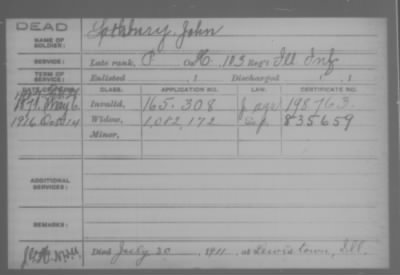 DEAD
NAME OF SOLDIER: John
SERVICE: Late rank, P Co. H. 103 Reg't Ill Inf
TERM OF SERVICE: Enlisted , 1 Discharged , 1
CLASS. APPLICATION NO. LAW. CERTIFICATE NO.
1871 May 6 Invalid, 165.308 198763.
1916 Oct 14 Widow, 1,082,172 835659
Minor,
ADDITIONAL SERVICES:
REMARKS:
Died July 20, 1911, at Lewistown, Ill.